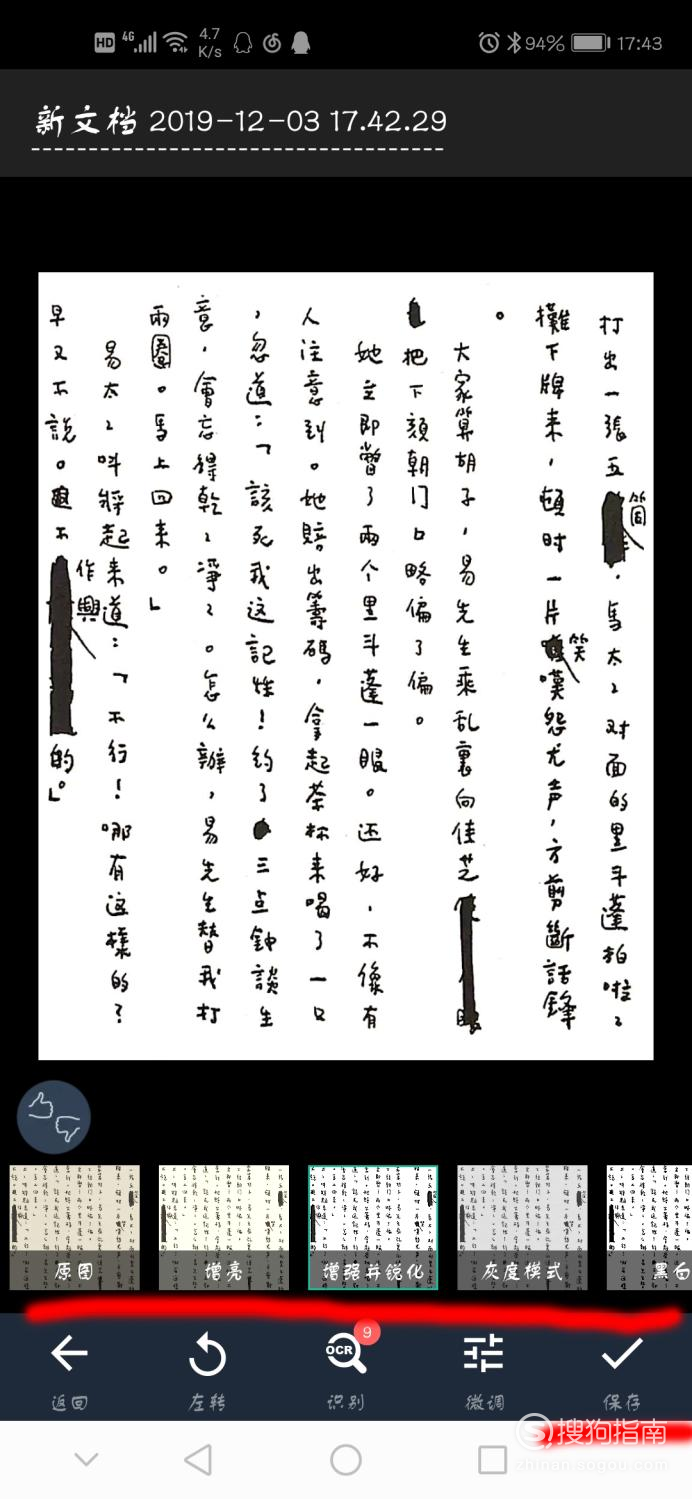 HD 4G 4.7 K/s 94% 17:43
新文档 2019-12-03 17.42.29
打出一張五筒，馬太〻对面的黑斗蓬拍啦〻
攤下牌来，頓时一片笑嘆怨尤声，方剪斷話鋒
。
大家算胡子，易先生乘乱裏向佳芝
把下頦朝门口略偏了偏。
她立即瞥了兩个黑斗蓬一眼。还好，不像有
人注意到。她賠出籌碼，拿起茶杯来喝了一口
，忽道：「該死我这記性！約了三点鈡談生
意，會忘得乾〻凈〻。怎么辦，易先生替我打
兩圈。馬上回来。」
易太〻叫將起来道：「不行！哪有这樣的？
早又不說。不作興的。」
原图
增亮
增强并锐化
灰度模式
黑白
OCR 9
返回
左转
识别
微调
保存
搜狗指南
zhinan.sogou.com